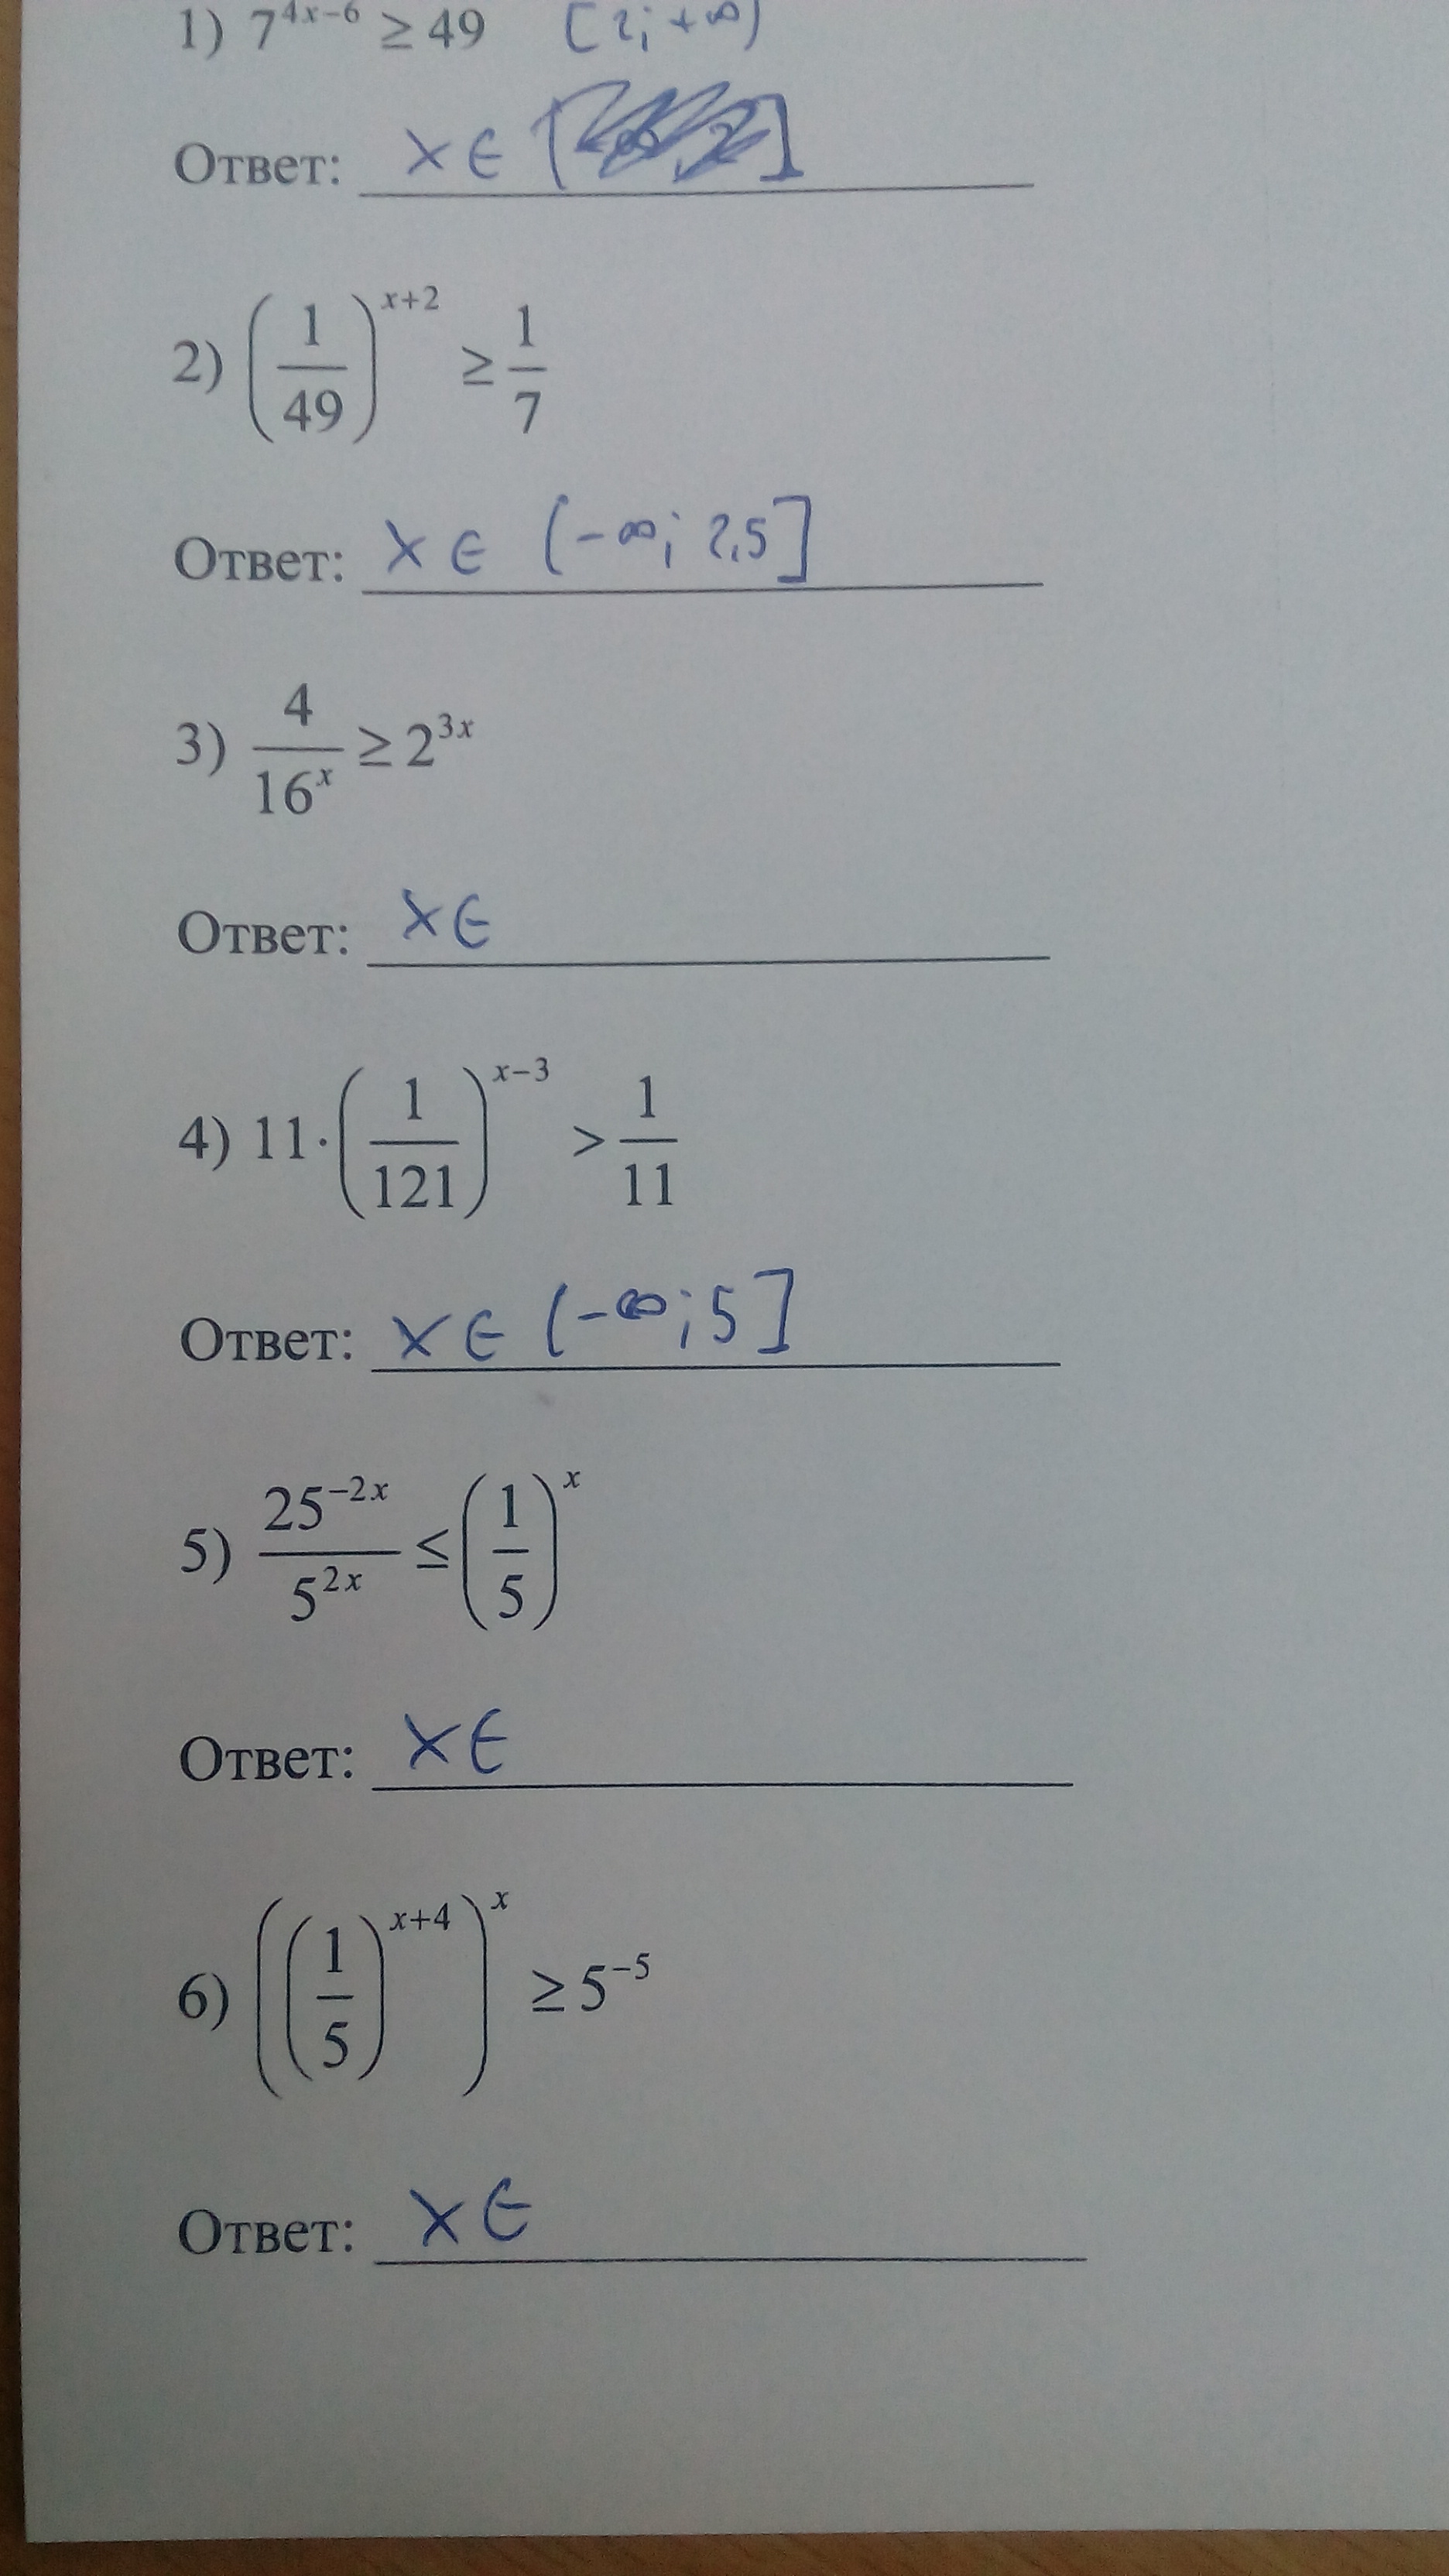 1) 7^{4x−6} ≥ 49 [2; +∞)
Ответ: x ∈ [ ]
2) (1/49)^{x+2} ≥ 1/7
Ответ: x ∈ (-∞; 2,5]
3) 4/16^x ≥ 2^{3x}
Ответ: x ∈
4) 11·(1/121)^{x−3} > 1/11
Ответ: x ∈ (-∞; 5]
5) 25^{−2x}/5^{2x} ≤ (1/5)^x
Ответ: x ∈
6) ((1/5)^{x+4})^x ≥ 5^{−5}
Ответ: x ∈